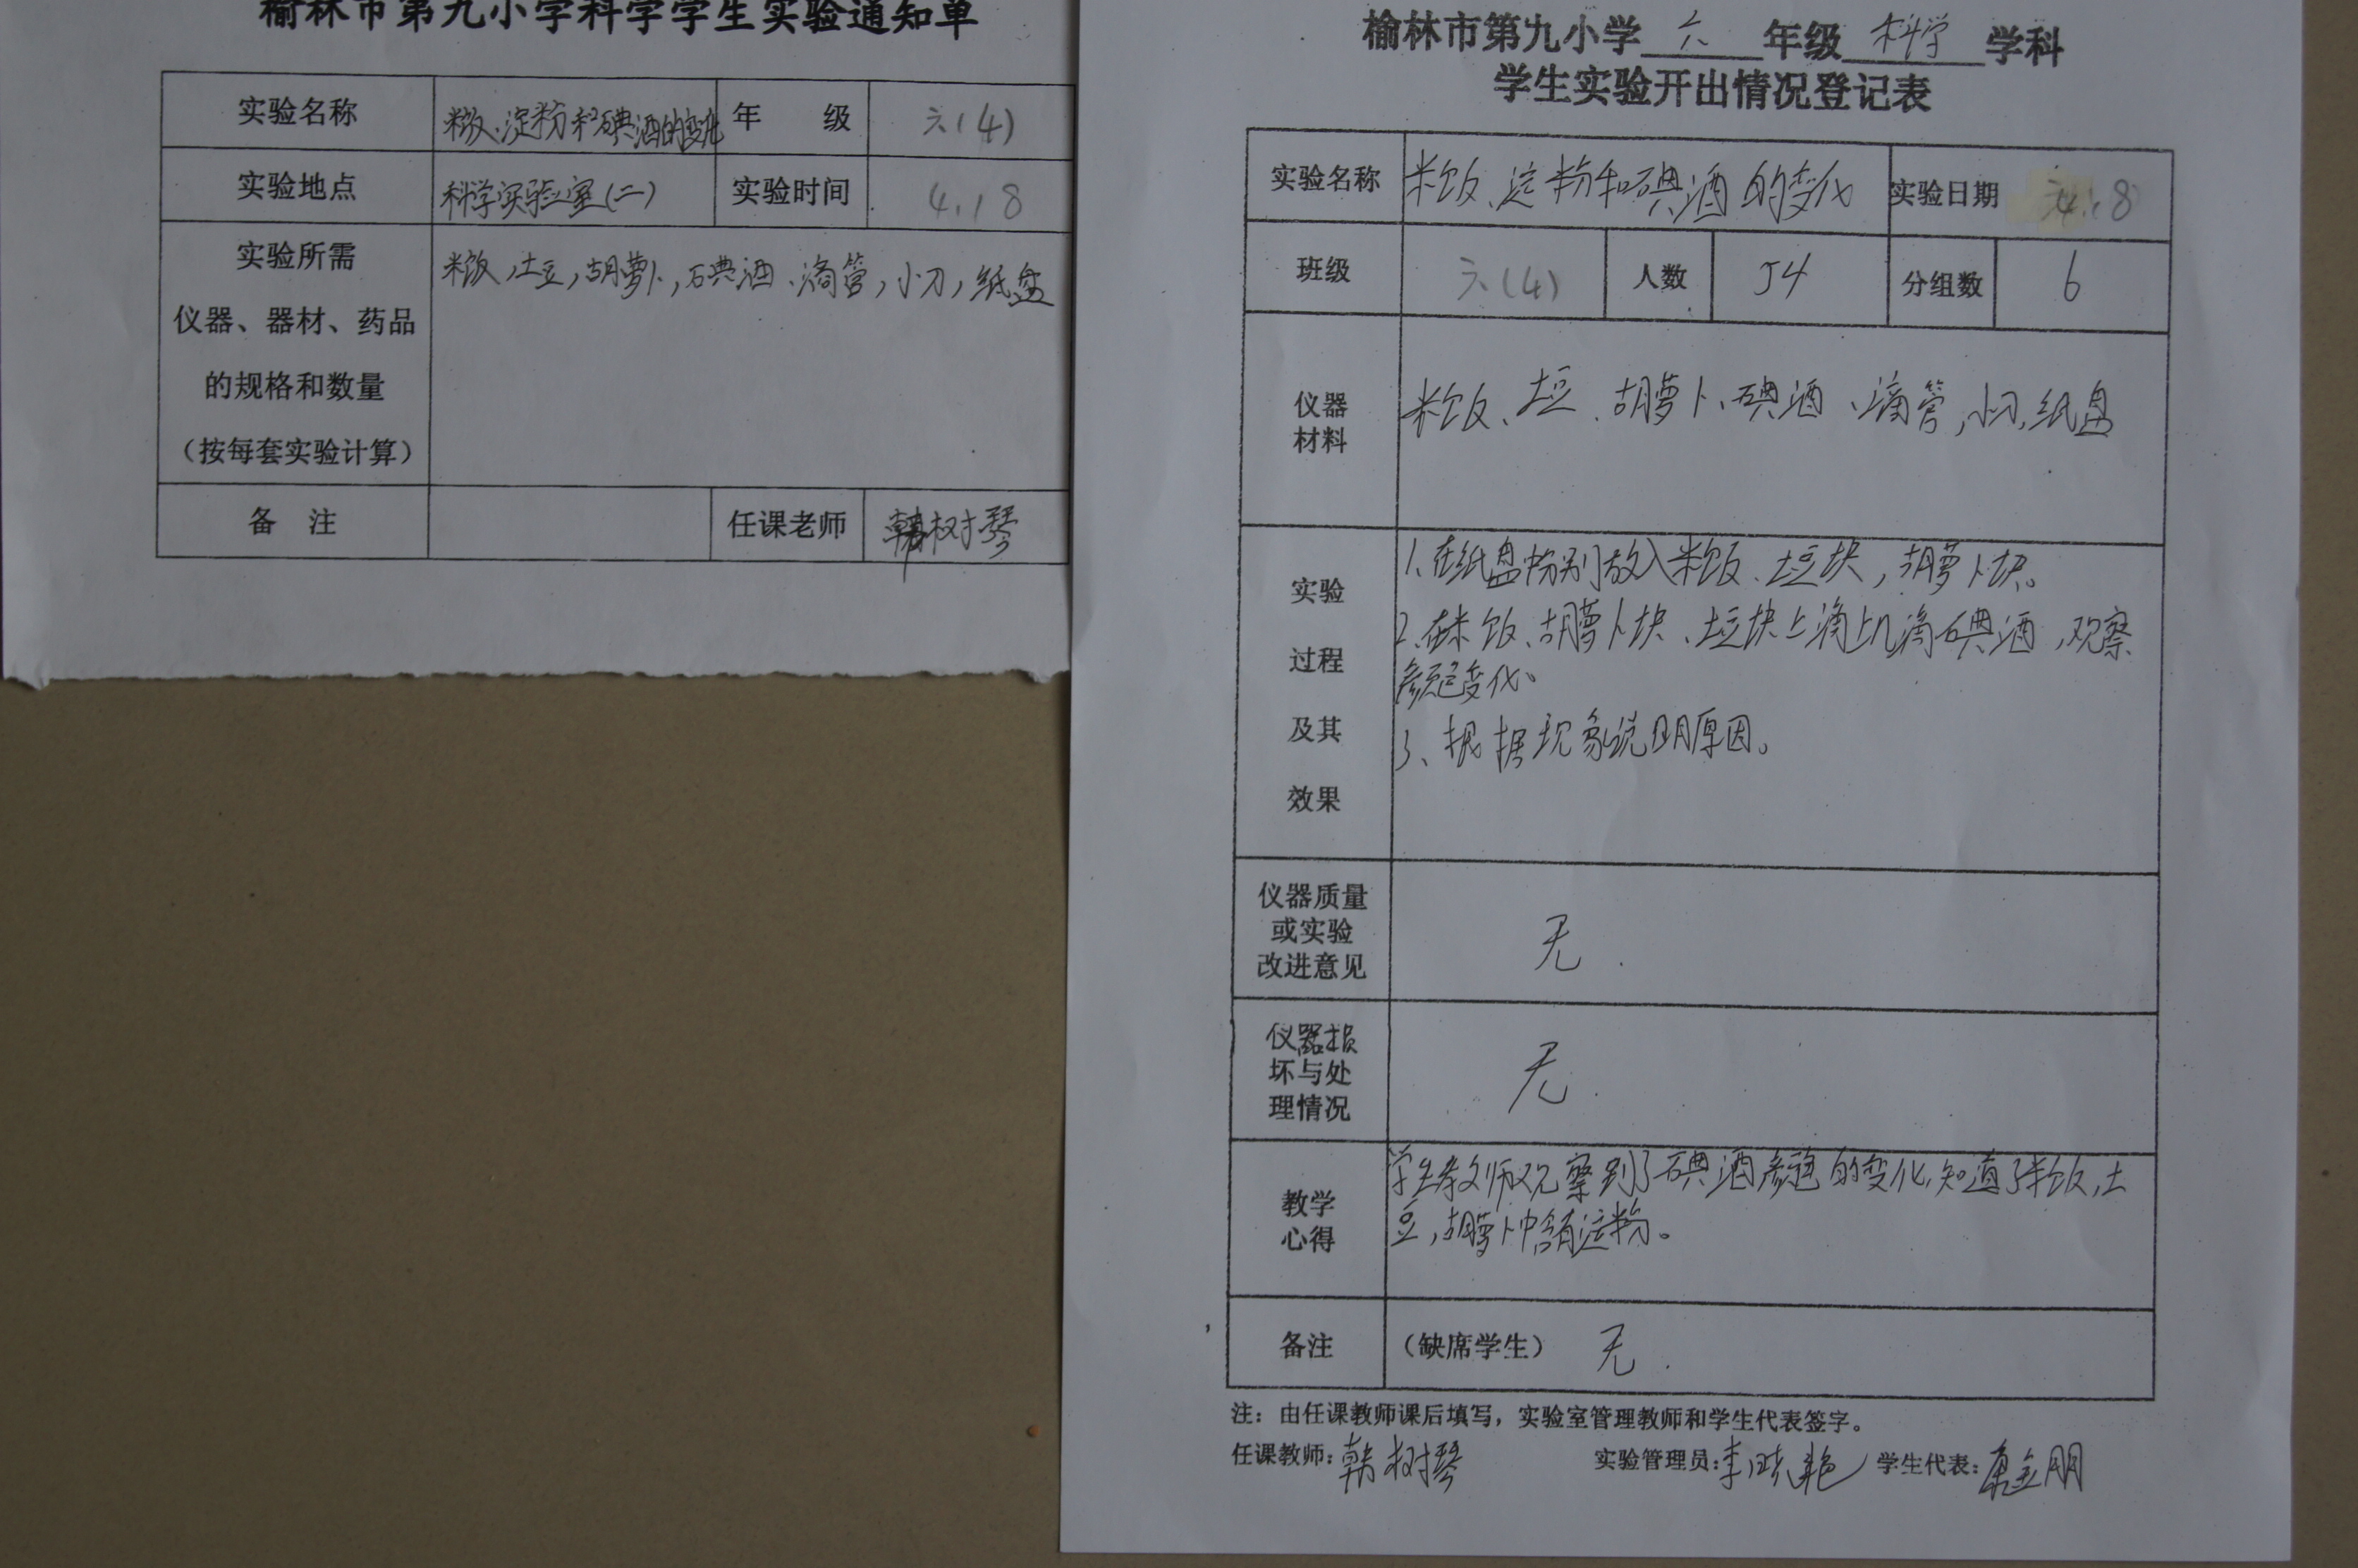 榆林市第九小学科学学生实验通知单
实验名称 米饭、淀粉和碘酒的变化 年 级 六(4)
实验地点 科学实验室(二) 实验时间 4.18
实验所需
仪器、器材、药品
的规格和数量
(按每套实验计算)
米饭,土豆,胡萝卜,碘酒、滴管,小刀,纸盘
备 注 任课老师 韩树琴
榆林市第九小学 六 年级 科学 学科
学生实验开出情况登记表
实验名称 米饭、淀粉和碘酒的变化 实验日期 4.18
班级 六(4) 人数 54 分组数 6
仪器
材料
米饭、土豆、胡萝卜、碘酒、滴管,小刀,纸盘
实验
过程
及其
效果
1、在纸盘中分别放入米饭、土豆块,胡萝卜块。
2、在米饭、胡萝卜块、土豆块上滴上几滴碘酒,观察
颜色变化、
3、根据现象说明原因。
仪器质量
或实验
改进意见
无.
仪器损
坏与处
理情况
无.
教学
心得
学生教师观察到了碘酒颜色的变化,知道了米饭,土
豆,胡萝卜中含有淀粉。
备注 (缺席学生) 无.
注:由任课教师课后填写,实验室管理教师和学生代表签字。
任课教师:韩树琴 实验管理员:李晓艳 学生代表: